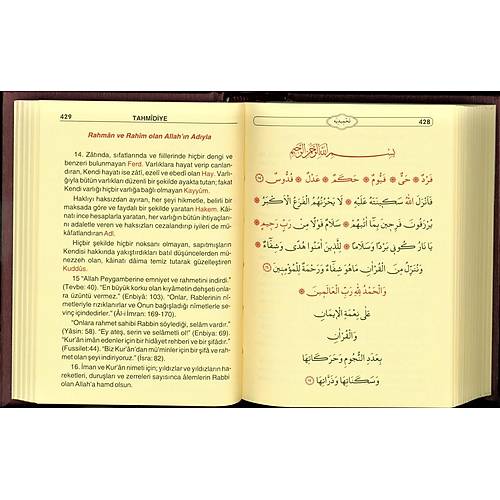 429 TAHMİDİYE
Rahmân ve Rahîm olan Allah'ın Adıyla
14. Zâtında, sıfatlarında ve fiillerinde hiçbir dengi ve
benzeri bulunmayan Ferd. Varlıklara hayat verip canlan-
dıran, Kendi hayatı ise zâtî, ezelî ve ebedî olan Hay. Varlı-
ğıyla bütün varlıkları düzenli bir şekilde ayakta tutan; fakat
Kendi varlığı hiçbir varlığa bağlı olmayan Kayyûm.
Haklıyı haksızdan ayıran, her şeyi hikmetle, belirli bir
maksada göre ve faydalı bir şekilde yaratan Hakem. Kâi-
natı ince hesaplarla yaratan, her varlığın bütün ihtiyaçları-
nı adaletle veren ve haksızları cezalandırıp iyileri de mü-
kâfatlandıran Adl.
Hiçbir şekilde hiçbir noksanı olmayan, sapıtmışların
Kendisi hakkında yakıştırdıkları batıl düşüncelerden mü-
nezzeh olan, kâinatı dâima temiz tutarak güzelleştiren
Kuddûs.
15 "Allah Peygamberine emniyet ve rahmetini indirdi."
(Tevbe: 40). "En büyük korku olan kıyâmetin dehşeti on-
lara üzüntü vermez." (Enbiyâ: 103). "Onlar, Rablerinin ni-
metleriyle rızıklanıyorlar ve Onun bağışladığı nimetlerden
sevinç içindedirler." (Âl-i İmran: 169-170).
"Onlara rahmet sahibi Rabbin söylediği, selâm vardır."
(Yâsin: 58). "Ey ateş, serin ve selâmetli ol!" (Enbiya: 69).
"Kur'ân imân edenler için bir hidâyet rehberi ve bir şifâdır."
(Fussilet:44). "Biz Kur'an'dan mü'minler için bir şifâ ve rah-
met olan şeyi indiriyoruz." (İsra: 82).
16. İman ve Kur'ân nimeti için; yıldızlar ve yıldızların ha-
reketleri, duruşları ve zerreleri sayısınca âlemlerin Rabbi
olan Allah'a hamd olsun.
تحميديه 428
بِسْمِ اللّٰهِ الرَّحْمٰنِ الرَّحِيمِ
فَرْدٌ ❁ حَىٌّ ❁ قَيُّومٌ ❁ حَكَمٌ ❁ عَدْلٌ ❁ قُدُّوسٌ
فَاَنْزَلَ اللّٰهُ سَكِينَتَهُ عَلَيْهِ ❁ لَا يَحْزُنُهُمُ الْفَزَعُ الْاَكْبَرُ
يُرْزَقُونَ فَرِحِينَ بِمَا اٰتٰيهُمْ ❁ سَلَامٌ قَوْلًا مِنْ رَبٍّ رَحِيمٍ
يَا نَارُ كُونِى بَرْدًا وَسَلَامًا ❁ لِلَّذِينَ اٰمَنُوا هُدًى وَشِفَاءٌ
وَنُنَزِّلُ مِنَ الْقُرْاٰنِ مَاهُوَ شِفَاءٌ وَرَحْمَةٌ لِلْمُؤْمِنِينَ
وَالْحَمْدُ لِلّٰهِ رَبِّ الْعَالَمِينَ
عَلٰى نِعْمَةِ الْاِيمَانِ
وَالْقُرْاٰنِ
بِعَدَدِ النُّجُومِ وَحَرَكَاتِهَا
وَسَكَنَاتِهَا وَذَرَّاتِهَا